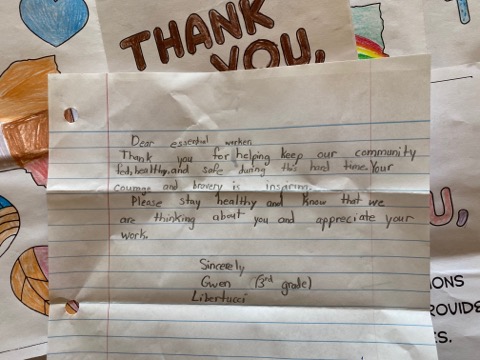 THANK
YOU,
Dear essential worker,
Thank you for helping keep our community
fed, healthy, and safe during this hard time. Your
courage and bravery is inspiring.
Please stay healthy and know that we
are thinking about you and appreciate your
work.
Sincerely
Gwen (3rd grade)
Libertucci
U,
ONS
ROVIDE
S.